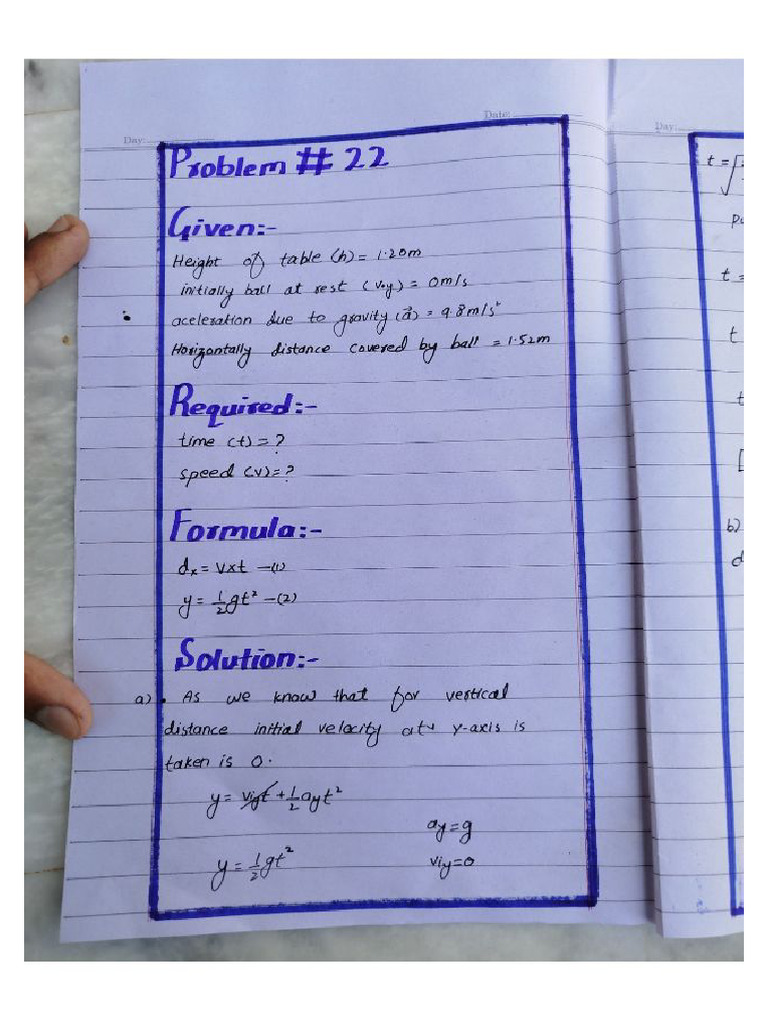 Date:
Day:
Problem # 22
Given:-
Height of table (h) = 1.20m
initially ball at rest (Voy) = 0m/s
aceleration due to gravity (a⃗) = 9.8m/s²
Horizontally distance covered by ball = 1.52m
Required:-
time (t) = ?
speed (v) = ?
Formula:-
dx = v×t —(1)
y = 1/2 gt² —(2)
Solution:-
a). As we know that for vertical
distance initial velocity at y-axis is
taken is 0.
y = viyt + 1/2 ayt²
ay = g
y = 1/2 gt²
viy = 0
Day:
t = √
t =
t
t
b)
d